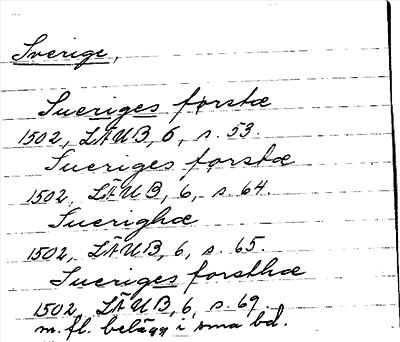 Sverige,
Sueriges førstæ
1502, LÄUB, 6, s. 53.
Suerigesførstæ
1502, LÄUB, 6, s. 64.
Suerighæ
1502, LÄUB, 6, s. 65.
Sueriges forsthæ
1502, LÄUB, 6, s. 69.
m.fl. belägg i sma bd.